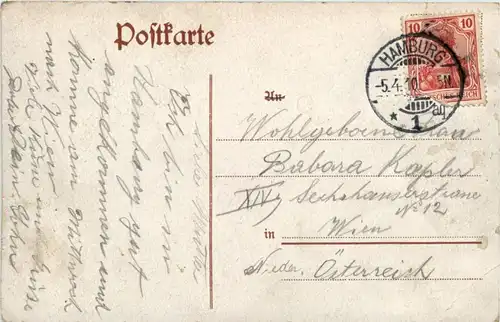 Postkarte
Liebe Mutter
Ich bin in
Hamburg gut
angekommen und
komme am Mittwoch
nach Wien
viele Küsse und Grüsse
10 10
DEUTSCHES REICH
HAMBURG
-5.4.10. 5-N
* 1 aq
An
Wohlgeborne Frau
Babara Kapler
XIV Sechshauserstrasse
No 12
in Wien
Nieder. Österreich